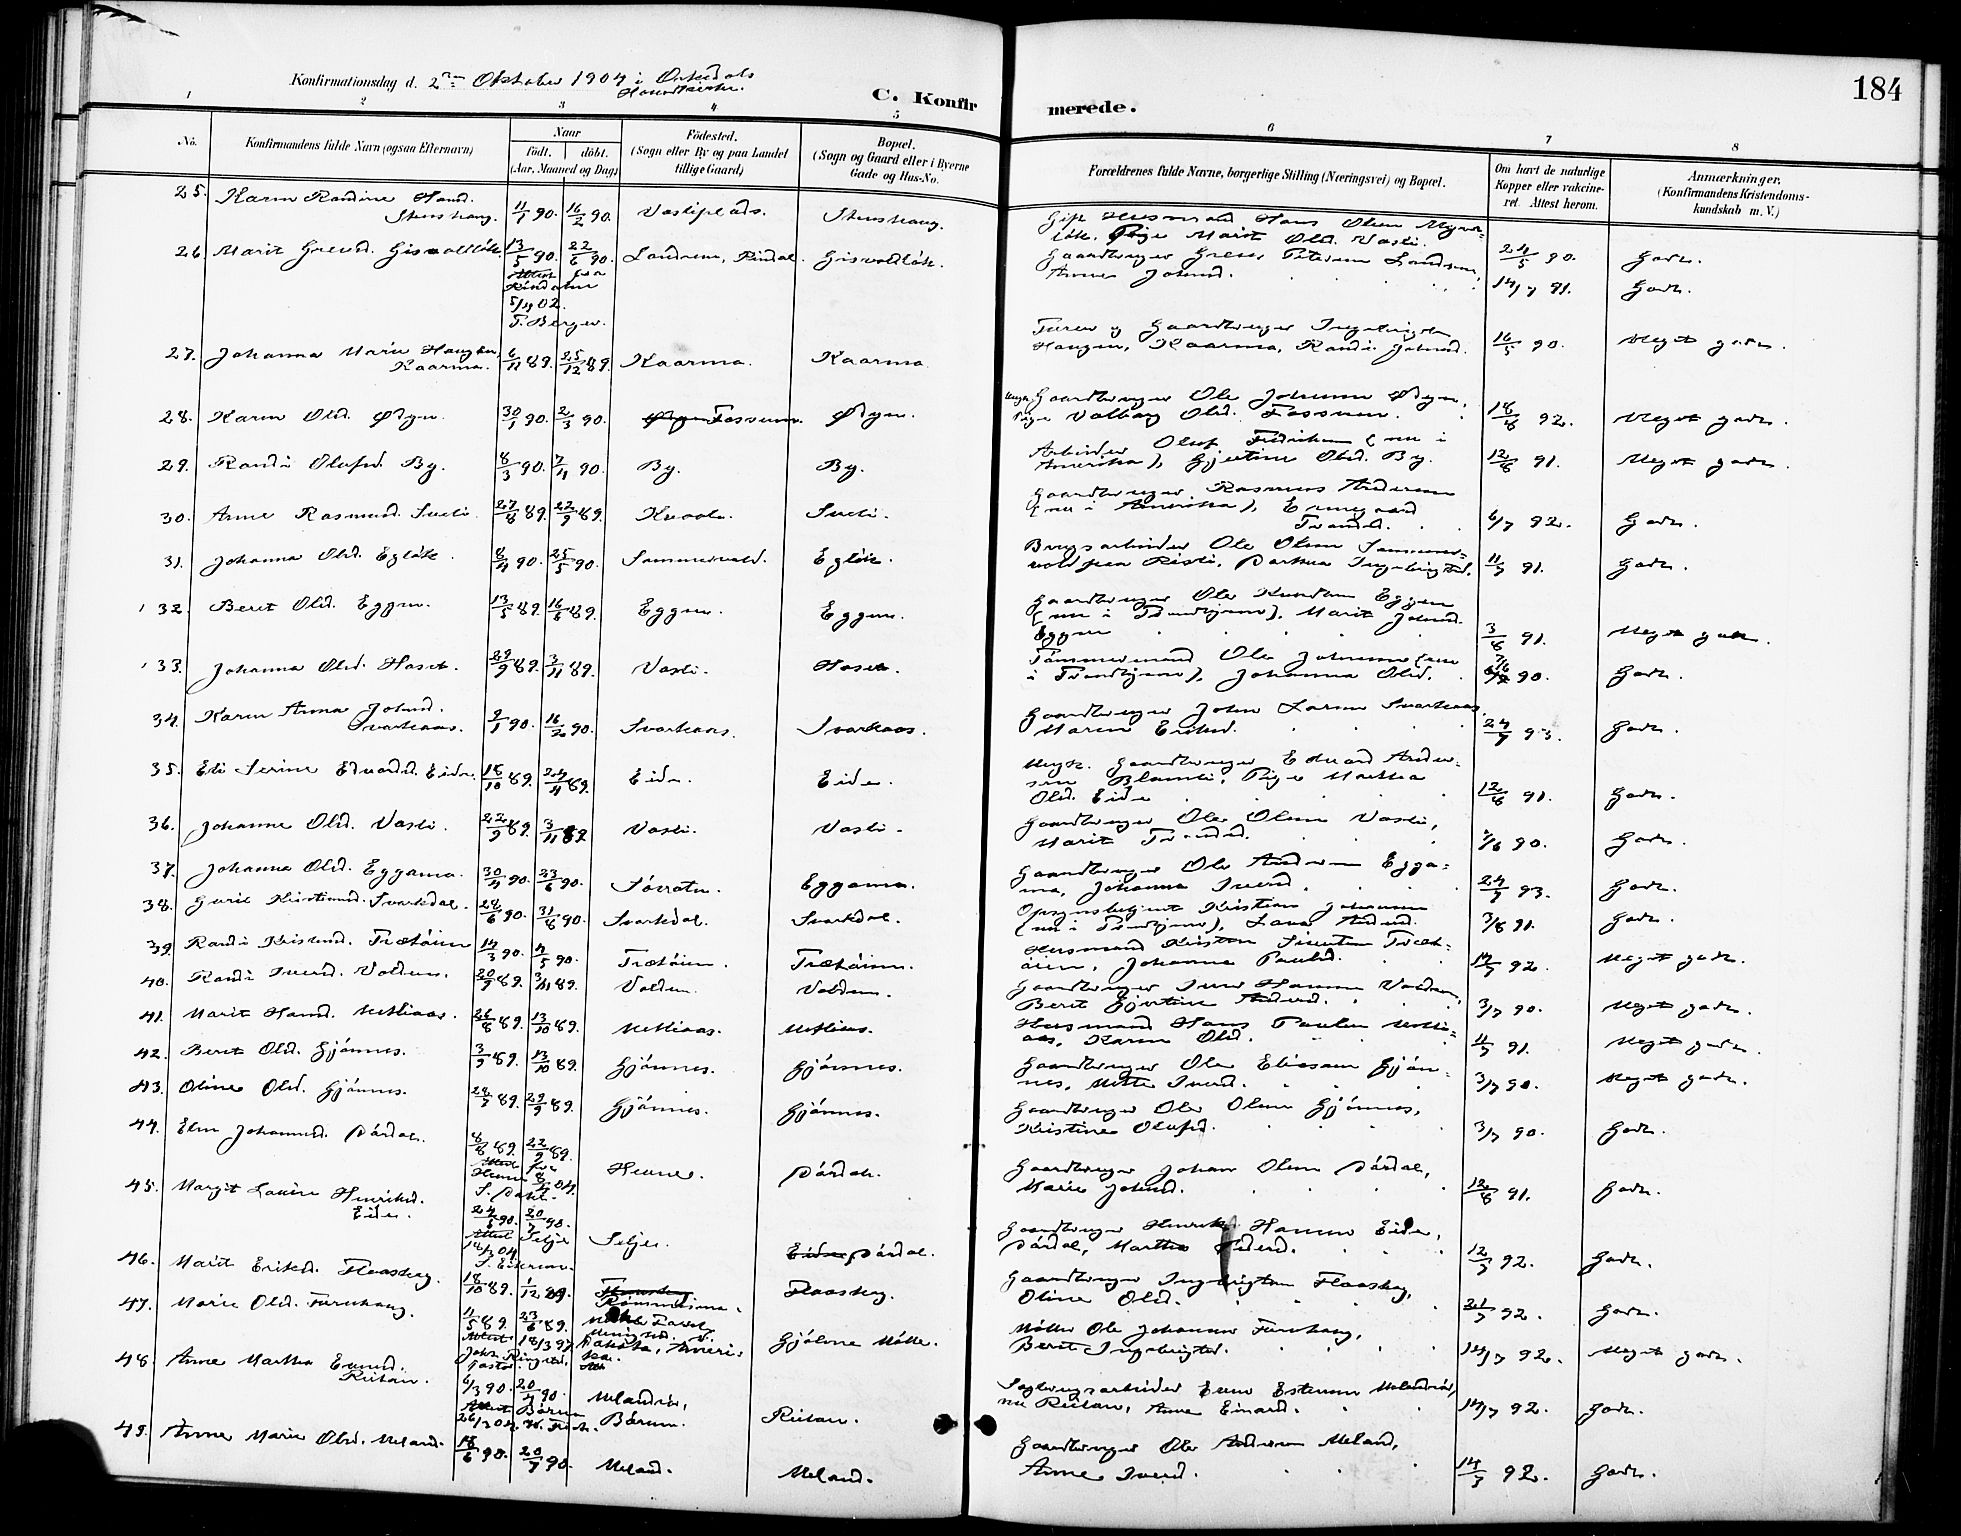 184
Konfirmationsdag d. 2den Oktober 1904 i Orkedals
Hovedkirke.
C. Konfirmerede.
1 2 3 4 5 6 7 8
No.
Konfirmandens fulde Navn (ogsaa Efternavn)
Naar
födt. döbt.
(Aar, Maaned og Dag)
Födested.
(Sogn eller By og paa Landet
tillige Gaard)
Bopæl.
(Sogn og Gaard eller i Byerne
Gade og Hus-No.
Forældrenes fulde Navne, borgerlige Stilling (Næringsvei) og Bopæl.
Om havt de naturlige
Kopper eller vakcine-
ret. Attest herom.
Anmærkninger.
(Konfirmandens Kristendoms-
kundskab m. V.)
25. Karen Randine Hansd. 11/1 90. 16/2 90. Vasliplads.
Gift Husmand Hans Olsen
Pige Marit Olsd. Vasli. 24/5 90. Godt.
26 Marit Gresd. Gisvoldløk. 13/5 90. 22/6 90. Landrem, Rindal. Gisvoldløk.
Attest fra
Rindalen
5/4 02.
T. Berger.
Gaardbruger Gres Petersen Landrem,
Anne Johnsd. 14/7 91. Godt.
27. Johanna Marie Haugen, Kaarma. 6/11 89. 25/12 89. Kaarma. Kaarma
Gaardbruger Ingebrigt
Haugen, Kaarma, Randi Johnsd. 16/5 90. Meget godt.
28. Karen Olsd. Ødgn. 30/1 90. 2/3 90. Fossum. Ødgn.
Ungk. Gaardbruger Ole Johnsen Ødgn,
Pige Valborg Olsd. Fossum. 18/8 92. Meget godt.
29. Randi Olufsd. By. 8/3 90. 7/4 90. By. By.
Arbeider Oluf Fredriksen (nu i
Amerika), Gjertine Olsd. By. 12/8 91. Meget godt.
30. Anne Rasmusd. Sneli. 27/8 89. 22/9 89. Kvaale. Sneli.
Gaardbruger Rasmus Andersen
(nu i Amerika), Ermegaard
Trondsd. 6/7 92. Godt.
31. Johanna Olsd. Egløk. 8/4 90. 25/5 90. Sommervold. Egløk.
Brugsarbeider Ole Olsen Sommer-
vold paa Risli, Dorthea Ingebrigtsd. 11/7 91. Godt.
32. Beret Olsd. Eggen. 13/5 89. 16/6 89. Eggen. Eggen.
Gaardbruger Ole Knudsen Eggen
(nu i Trondhjem), Marit Johnsd.
Eggen 3/8 91. Meget godt.
33. Johanna Olsd. Hoset. 29/9 89. 3/11 89. Vasli. Hoset.
Tømmermand Ole Johnsen (nu
i Trondhjem), Johanna Olsd. 90. Godt.
34. Karen Anna Johnsd.
Svorkaas. 9/1 90. 16/2 90. Svorkaas. Svorkaas.
Gaardbruger John Larsen Svorkaas,
Maren Eriksd. 24/7 93. Godt.
35. Eli Serine Edvardsd. Eide. 18/10 89. 24/11 89. Eide. Eide.
Ungk. Gaardbruger Edvard Ander-
sen Blomli, Pige Marthea
Olsd. Eide 12/8 91. Godt.
36. Johanne Olsd. Vasli. 22/9 89. 3/11 89 Vasli. Vasli.
Gaardbruger Ole Olsen Vasli,
Marit Trondsd. 90. Godt.
37. Johanna Olsd. Eggama. 30/4 90. 23/6 90. Eggama.
Gaardbruger Ole Andersen Egga-
ma, Johanna Iversd. 24/7 93. Godt.
38. Guril Kristiansd. Svorkdal. 28/6 90. 31/8 90. Svorkdal. Svorkdal.
Opsynsbetjent Kristian Johansen
(nu i Trondhjem), Lava Andersd. 3/8 91. Godt.
39. Randi Kristensd. Trætøien 14/3 90. 4/5 90. Trætøien. Trætøien.
Husmand Kristen Sivertsen Træt-
øien, Johanna Paulsd. 14/7 92. Meget godt.
40. Randi Iversd. Volden. 20/9 89. 3/11 89. Volden. Volden.
Gaardbruger Iver Hansen Volden,
Beret Gjertine Andersd. 3/7 90. Meget godt.
41. Marit Hansd. Mosliaas. 26/8 89. 13/10 89. Mosliaas. Mosliaas.
Husmand Hans Paulsen Mosli-
aas, Karen Olsd. 11/7 91. Meget godt.
42. Beret Olsd. Gjønnes. 3/9 89. 13/10 89. Gjønnes. Gjønnes.
Gaardbruger Ole Eliasen Gjøn-
nes, Mette Iversd. 3/7 90. Meget godt.
43. Oline Olsd. Gjønnes. 28/7 89. 29/9 89. Gjønnes. Gjønnes.
Gaardbruger Ole Olsen Gjønnes,
Kristine Olufsd. 3/7 90. Godt.
44. Elen Johansd. Dørdal. 8/8 89. 22/9 89. Hevne. Dørdal.
Attest fra
Gaardbruger Johan Olsen Dørdal,
Marie Johnsd. 12/8 91. Godt.
45. Margit Lovise Henriksd.
Eide. 24/6 90. 20/7 90. Selje. Dørdal.
Attest Selje
Gaardbruger Henrik Hansen Eide,
Dørdal, Martha Pedersd. 12/7 92. Godt.
46. Marit Eriksd. Flaaskog. 18/10 89. 1/12 89. Flaaskog.
Gaardbruger Ingebrigtsen Flaaskog,
Oline Olsd. 21/7 92. Godt.
47. Marie Olsd. Furuhaug. 11/5 89. 23/6 89. Dakota, Ameri-
ka. Gjølme Mølle.
Attest 18/3 97
Pastor.
Møller Ole Johansen Furuhaug,
Berit Ingebrigtsd. 14/7 92. Meget godt.
48. Anne Martha Evensd.
Reitan. 6/3 90. 20/4 90. Bærum. Reitan.
Attest Bærum
Sagbrugsarbeider Even Estensen
nu Reitan, Anne Einarsd. 14/7 92. Godt.
49. Anne Marie Olsd. Meland. 18/6 90. 20/7 90. Meland. Meland.
Gaardbruger Ole Andersen Meland,
Anne Iversd. 14/7 92. Godt.